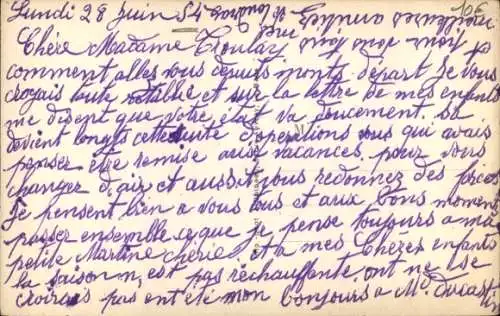 Lundi 28 Juin 54
10€
Chère Madame Troulay
comment alles vous depuits monts départ Je vous
croyais toute rétablie et sur la lettre de mes enfants
me disent que votre état va doucement. sa
devient longts cette suite d'operations vous qui avais
penser être remise aux vacances pour vous
changez d'air et aussit vous redonnez des forces
Je pensent bien a vous tous et aux bons moments
passer ensemble ce que je pense toujours a ma
petite Martine chérie et a mes Chères enfants
la saison n, est pas réchauffante ont ne se
croirais pas ent été mon bonjours a Me